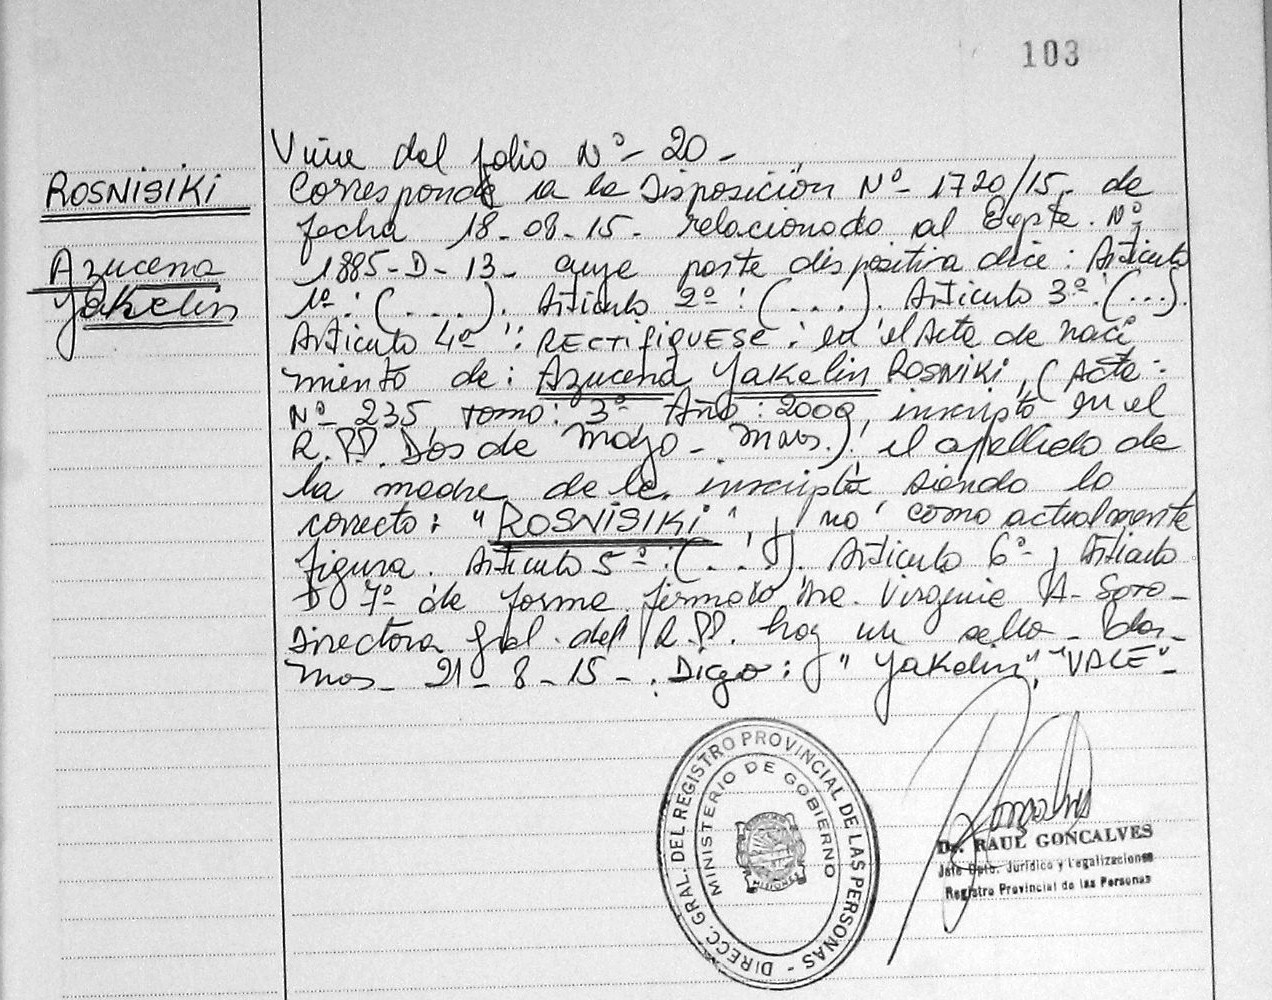 103
ROSNISIKI
Azucena
Yakelin
Viene del folio Nº- 20-
Corresponde a la Disposición Nº- 1720/15- de
fecha 18-08-15- relacionado al Expte. Nº
1885-D-13- cuya parte dispositiva dice: Artículo
1º: (....). Artículo 2º: (...). Artículo 3º: (...).
Artículo 4º: RECTIFIQUESE: en el Acta de naci
miento de: Azucena Yakelin ROSNIKI, (Acta-
Nº- 235 tomo: 3º Año: 2009, inscripta en el
R.PP. Dos de Mayo- Mnes.): el apellido de
la madre de la inscripta siendo lo
correcto: "ROSNISIKI" y no como actualmente
figura. Artículo 5º: (...). Artículo 6º y Artículo
7º de forma firmado Dra. Virginia A. Soro-
Directora Gral. del R.PP. hay un sello- Pdas-
Mnes- 21-8-15-. Digo: "Yakelin" "VALE"-
DIRECC. GRAL. DEL REGISTRO PROVINCIAL DE LAS PERSONAS -
MINISTERIO DE GOBIERNO
MISIONES
Dr. RAUL GONCALVES
Jefe Dpto. Jurídico y Legalizaciones
Registro Provincial de las Personas